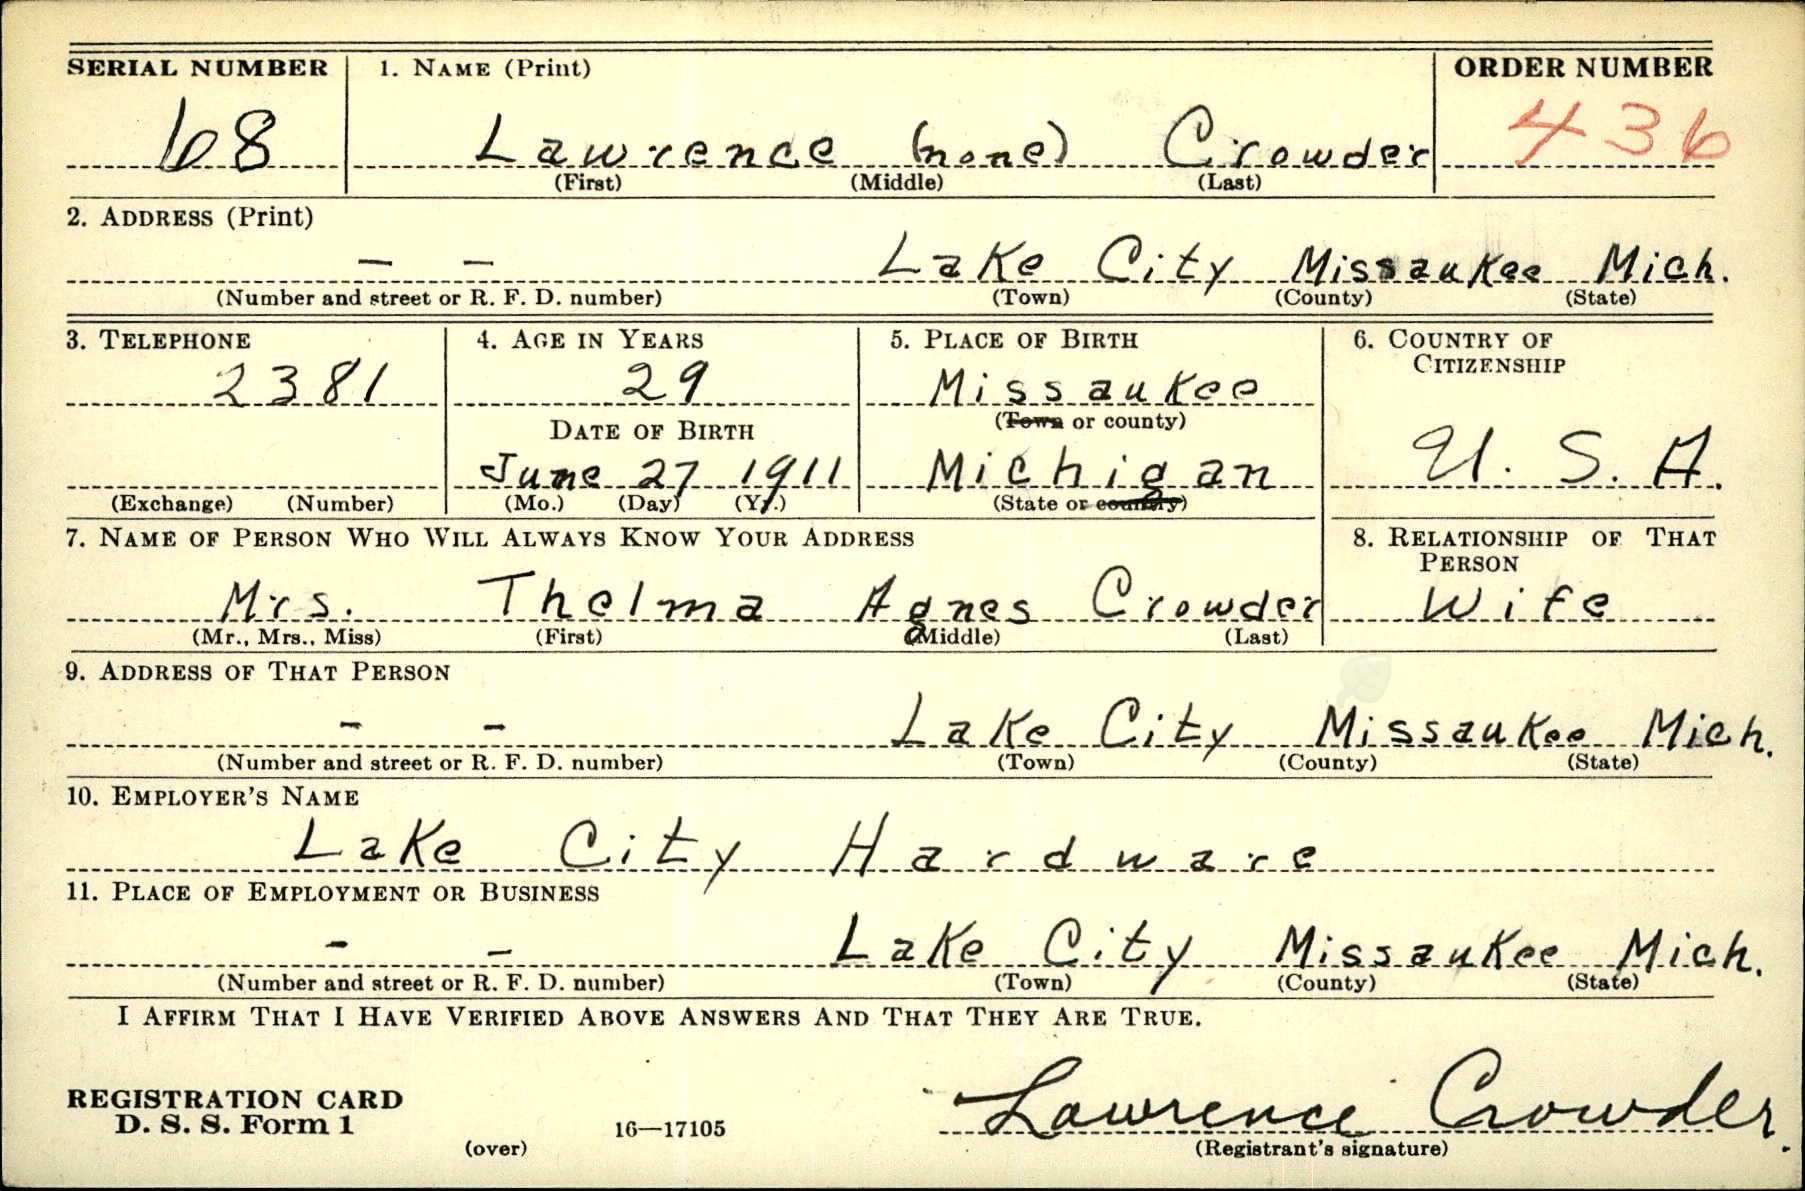 SERIAL NUMBER 1. NAME (Print) ORDER NUMBER
68 Lawrence (none) Crowder 436
(First) (Middle) (Last)
2. ADDRESS (Print)
– – Lake City Missaukee Mich.
(Number and street or R. F. D. number) (Town) (County) (State)
3. TELEPHONE 4. AGE IN YEARS 5. PLACE OF BIRTH 6. COUNTRY OF
CITIZENSHIP
2381 29 Missaukee
(Town or county)
DATE OF BIRTH
June 27 1911 Michigan U. S. A.
(Exchange) (Number) (Mo.) (Day) (Yr.) (State or country)
7. NAME OF PERSON WHO WILL ALWAYS KNOW YOUR ADDRESS 8. RELATIONSHIP OF THAT
PERSON
Mrs. Thelma Agnes Crowder Wife
(Mr., Mrs., Miss) (First) (Middle) (Last)
9. ADDRESS OF THAT PERSON
– – Lake City Missaukee Mich.
(Number and street or R. F. D. number) (Town) (County) (State)
10. EMPLOYER'S NAME
Lake City Hardware
11. PLACE OF EMPLOYMENT OR BUSINESS
– – Lake City Missaukee Mich.
(Number and street or R. F. D. number) (Town) (County) (State)
I AFFIRM THAT I HAVE VERIFIED ABOVE ANSWERS AND THAT THEY ARE TRUE.
REGISTRATION CARD
D. S. S. Form 1 Lawrence Crowder.
(over) 16—17105 (Registrant's signature)